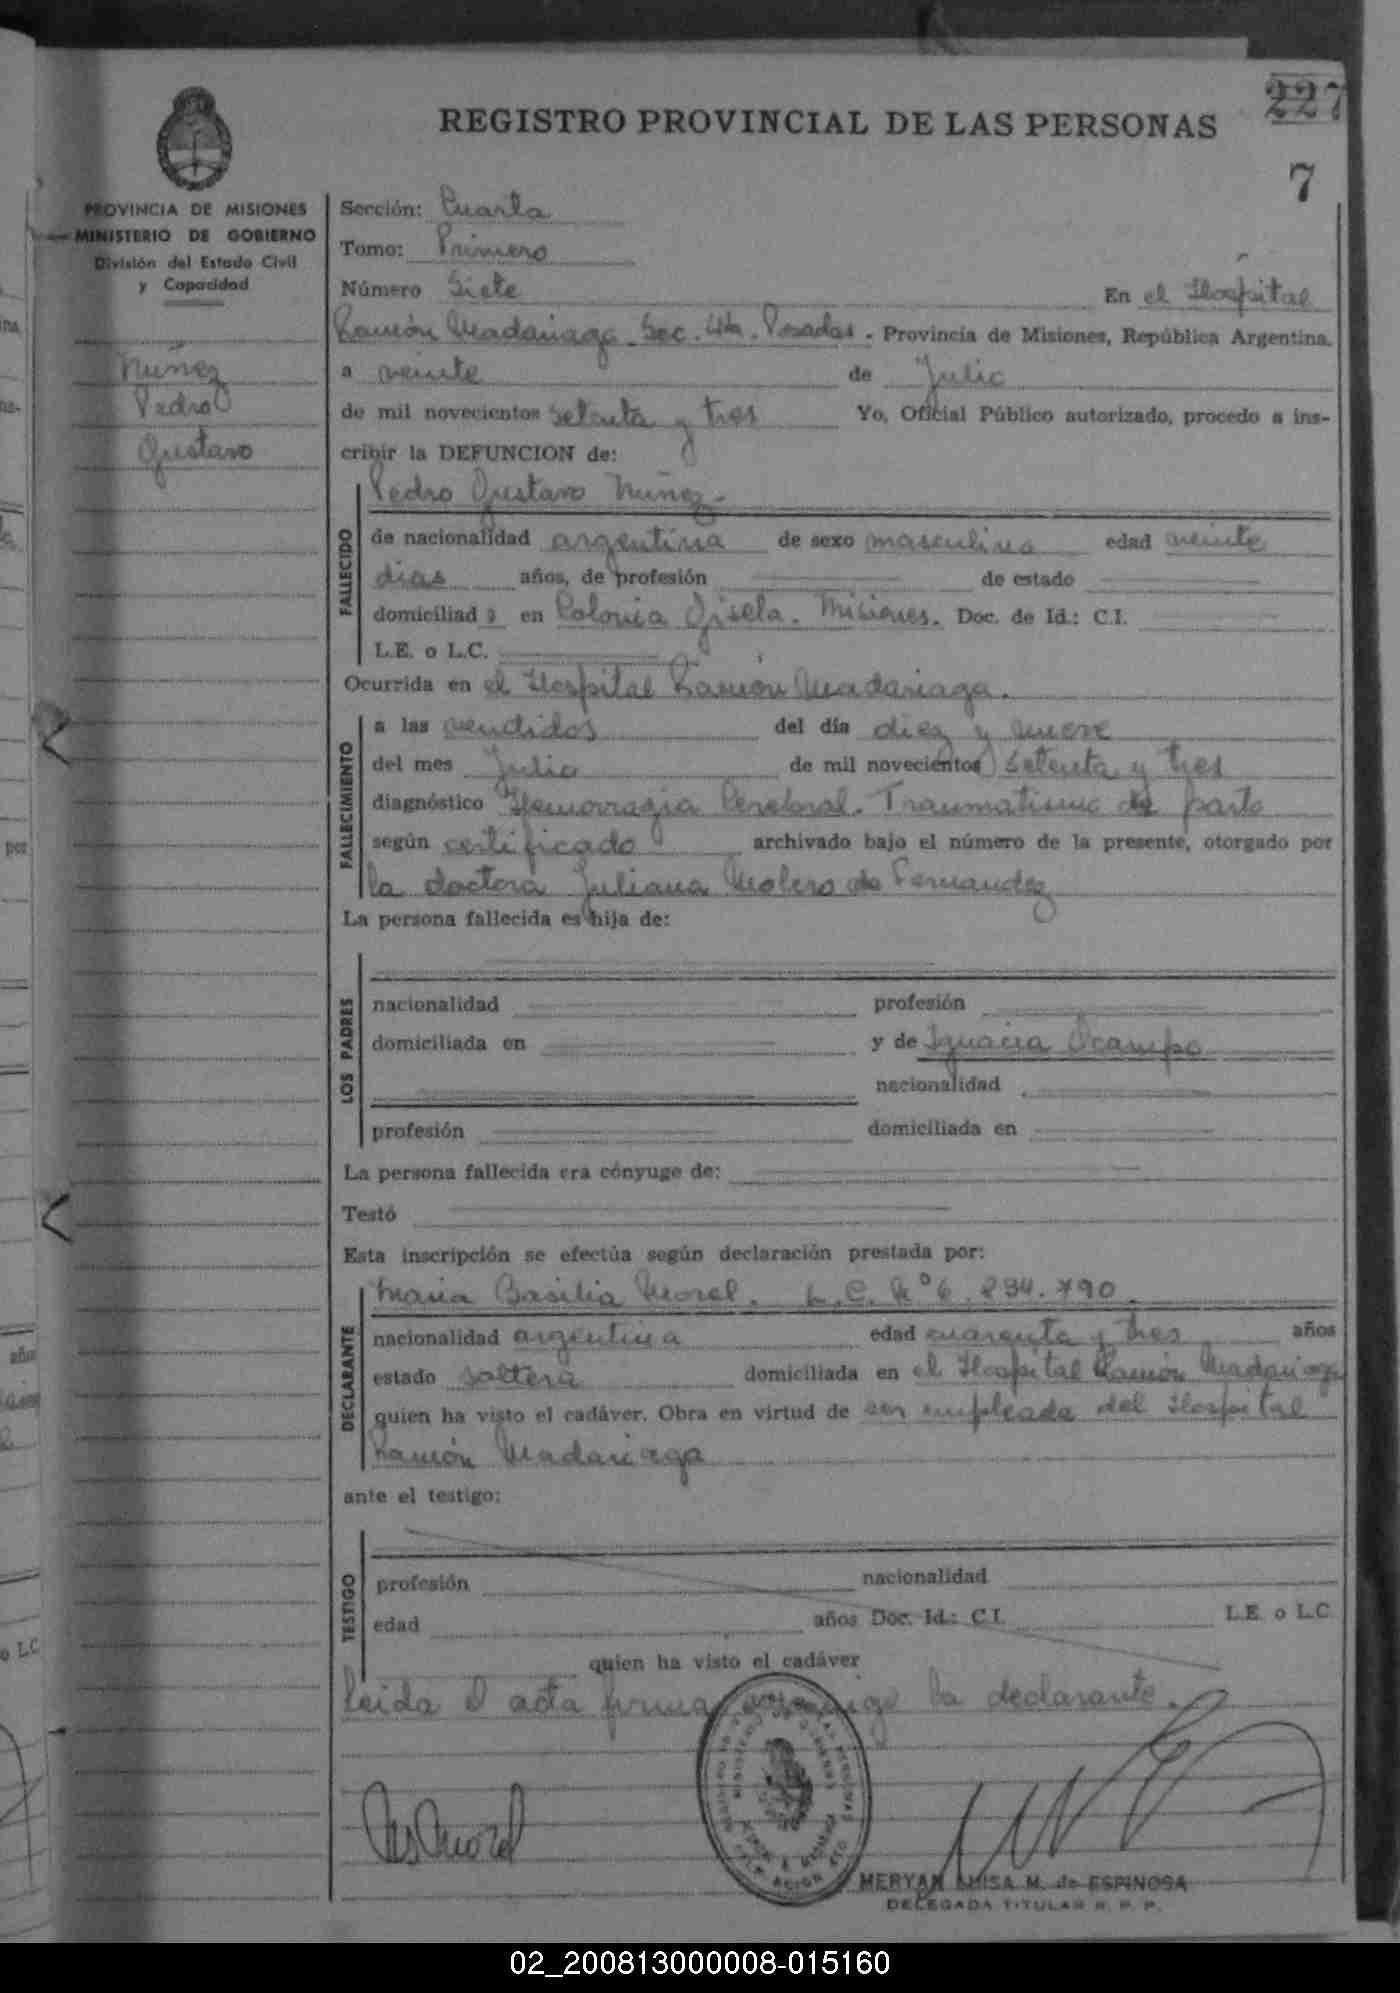 227
REGISTRO PROVINCIAL DE LAS PERSONAS
7
PROVINCIA DE MISIONES
MINISTERIO DE GOBIERNO
División del Estado Civil
y Capacidad
Nuñez
Pedro
Gustavo
Sección: Cuarta
Tomo: Primero
Número Siete En el Hospital
Ramón Madariaga. Sec. 4ta. Posadas. Provincia de Misiones, República Argentina,
a veinte de Julio
de mil novecientos setenta y tres Yo, Oficial Público autorizado, procedo a ins-
cribir la DEFUNCION de:
Pedro Gustavo Nuñez.
FALLECIDO
de nacionalidad argentina de sexo masculino edad veinte
dias años, de profesión de estado
domiciliado en Colonia Gisela. Misiones. Doc. de Id.: C.I.
L.E. o L.C.
Ocurrida en el Hospital Ramón Madariaga.
FALLECIMIENTO
a las veintidos del día diez y nueve
del mes Julio de mil novecientos setenta y tres
diagnóstico Hemorragia Cerebral. Traumatismo de parto
según certificado archivado bajo el número de la presente, otorgado por
la doctora Juliana Molero de Fernandez
La persona fallecida es hija de:
LOS PADRES
nacionalidad profesión
domiciliada en y de Ignacia Ocampo
nacionalidad
profesión domiciliada en
La persona fallecida era cónyuge de:
Testó
Esta inscripción se efectúa según declaración prestada por:
DECLARANTE
Maria Basilia Morel. L.C. Nº 6.234.790.
nacionalidad argentina edad cuarenta y tres años
estado soltera domiciliada en el Hospital Ramón Madariaga
quien ha visto el cadáver. Obra en virtud de ser empleada del Hospital
Ramón Madariaga
ante el testigo:
TESTIGO
profesión nacionalidad
edad años Doc. Id.: C.I. L.E. o L.C.
quien ha visto el cadáver
Leida el acta firma conmigo la declarante.
Morel
MERYAN LUISA M. de ESPINOSA
DELEGADA TITULAR R. P. P.
02_200813000008-015160